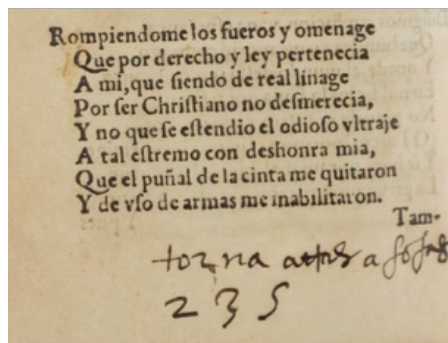 Rompiendome los fueros y omenage
Que por derecho y ley pertenecia
A mi, que siendo de real linage
Por ser Christiano no desmerecia,
Y no que se estendio el odioso vltraje
A tal estremo con deshonra mia,
Que el puñal de la cinta me quitaron
Y de vso de armas me inabilitaron.
Tam-
torna a
235